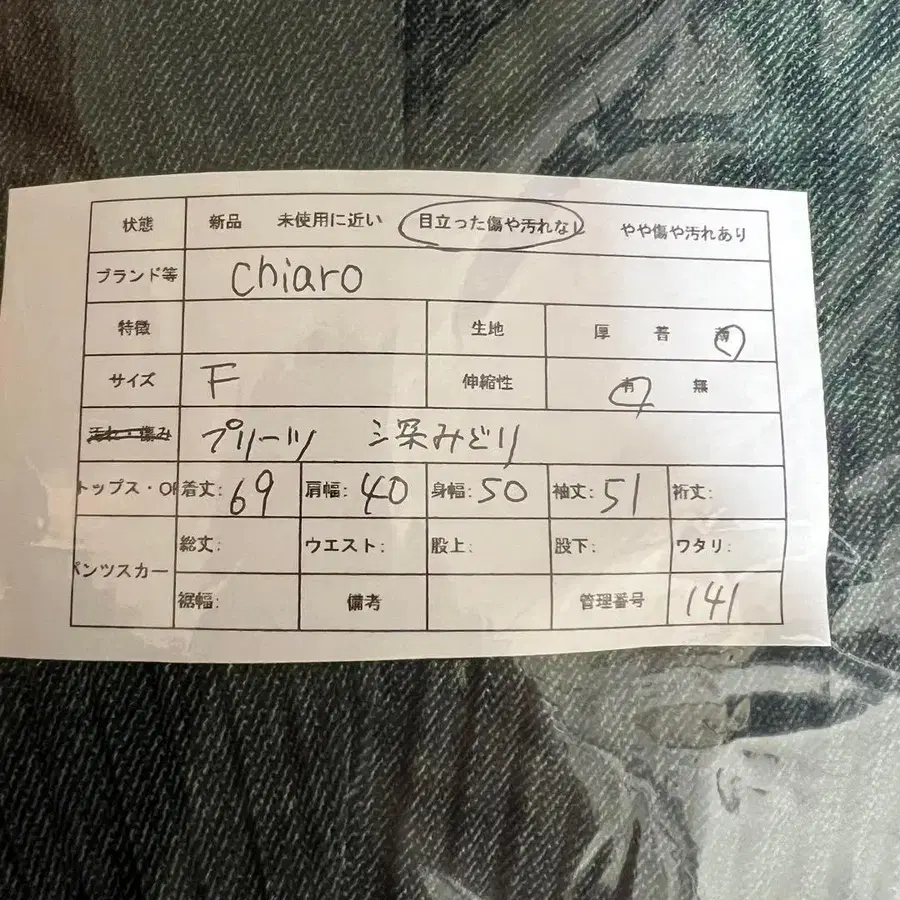 状態 新品 未使用に近い 目立った傷や汚れなし やや傷や汚れあり
ブランド等 chiaro
特徴 生地 厚 普 薄
サイズ F 伸縮性 有 無
汚れ・傷み プリーツ 深みどり
トップス・OP 着丈: 69 肩幅: 40 身幅: 50 袖丈: 51 裄丈:
パンツスカー 総丈: ウエスト: 股上: 股下: ワタリ:
裾幅: 備考 管理番号 141